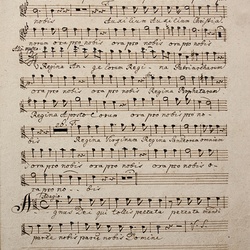 nobis Auxilium Auxilium Christia
norum ora pro nobis ora pro nobis ora pro nobis
Regina Angelorum Regina Patriarcharum
ora pro nobis ora pro nobis Regina Prophetarum
Regina Apostolorum ora pro nobis
ora pro nobis ora pro nobis ora pro nobis
nobis Regina Virginum Regina Sanctorum omnium
ora pro nobis ora pro nobis ora pro nobis o-
ra pro nobis
Agnus Dei qui tollis peccata peccata mundi
parce nobis parce nobis Domine